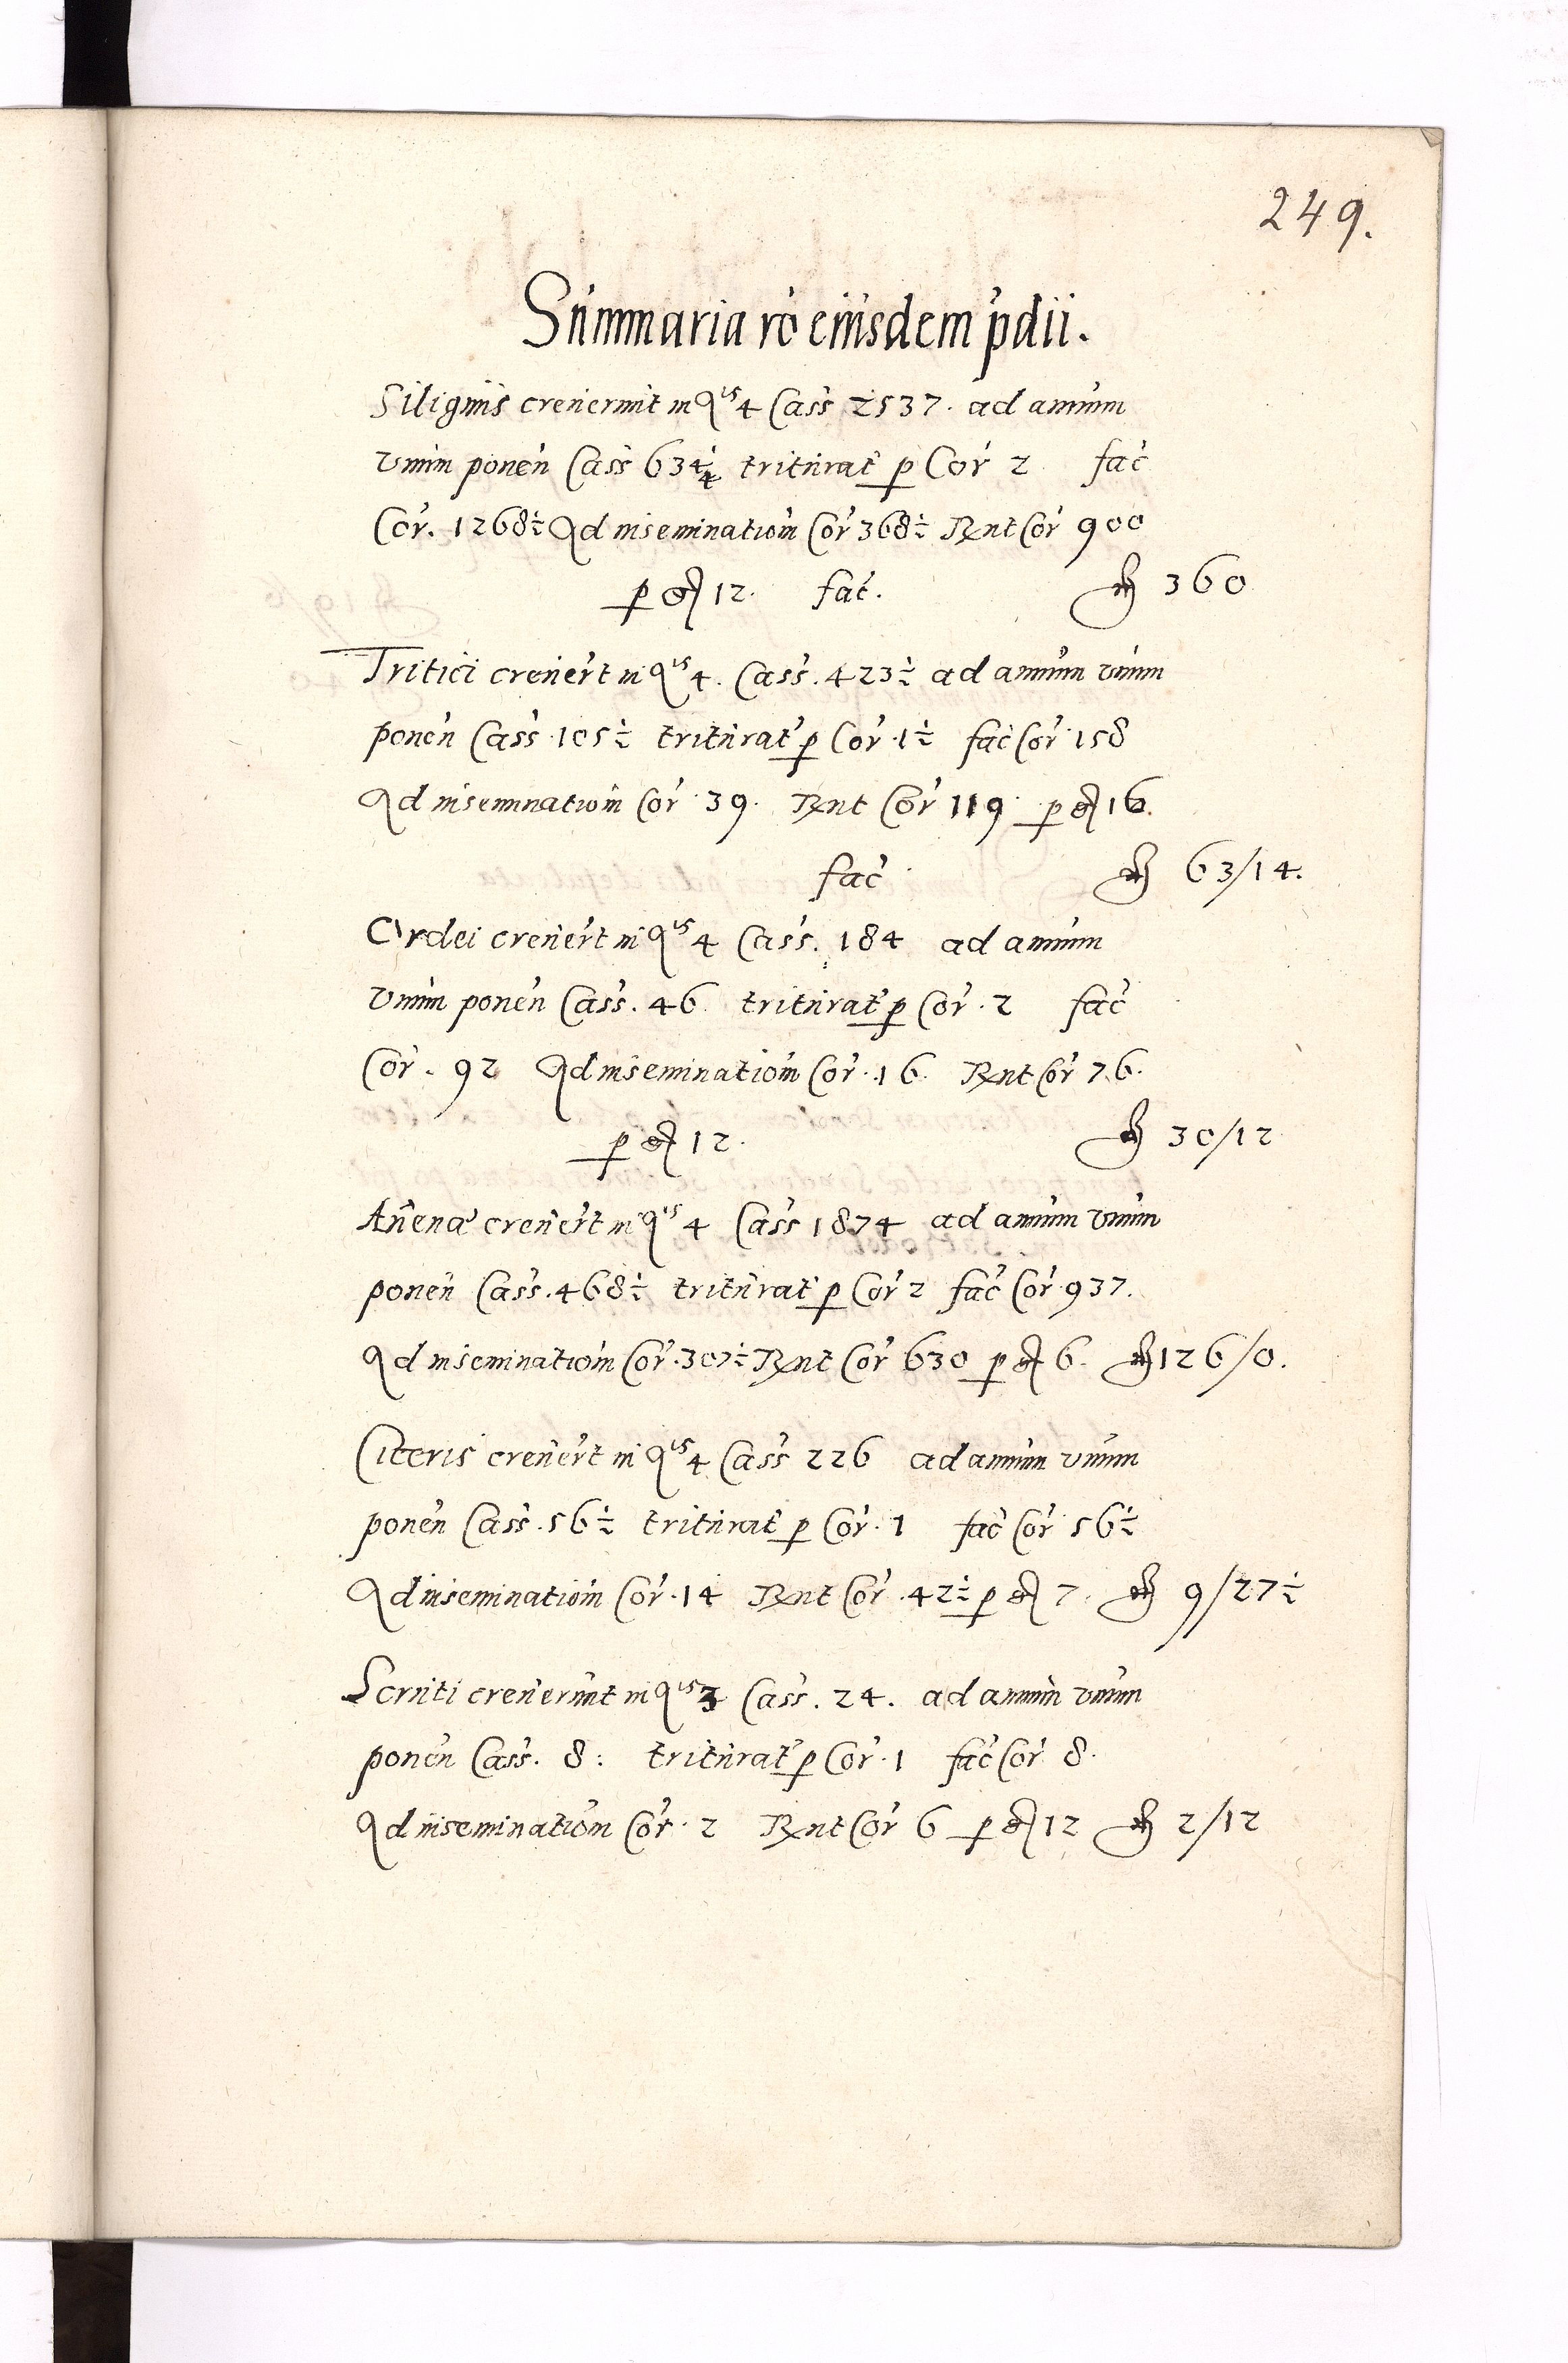 249.
Summaria ro eiusdem pdii.
Siliginis creuerunt in qis 4 Cass 2537. ad annum
vnum ponen Cass 634 1/4 triturat p Cor 2 fac
Cor. 1268 1/2 Ad inseminationem Cor 368 1/2 Rnt Cor 900
p gr 12. fac. fl 360
Tritici creuert in qis 4. Cass. 423 1/2 ad annum vnum
ponen Cass 105 1/2 triturat p Cor 1 1/2 fac Cor 158
Ad inseminationem Cor 39. Rnt Cor 119 p gr 16.
fac fl 63/14.
Ordei creuert in qis 4 Cass. 184 ad annum
vnum ponen Cass. 46 triturat p Cor. 2 fac
Cor. 92 Ad inseminationem Cor. 16 Rnt Cor 76.
p gr 12. fl 30/12
Auenae creuert in qis 4 Cass 1874 ad annum vnum
ponen Cass. 468 1/2 triturat p Cor 2 fac Cor 937.
Ad inseminationem Cor. 307 1/2 Rnt Cor 630 p gr 6. fl 126/0.
Citeris creuert in qis 4 Cass 226 ad annum vnum
ponen Cass. 56 1/2 triturat p Cor. 1 fac Cor 56 1/2
Ad inseminationem Cor. 14 Rnt Cor. 42 1/2 p gr 7. fl 9/27 1/2
Scruti creuerunt in qis 3 Cass. 24. ad annum vnum
ponen Cass. 8: triturat p Cor. 1 fac Cor 8.
Ad inseminationem Cor. 2 Rnt Cor 6 p gr 12 fl 2/12